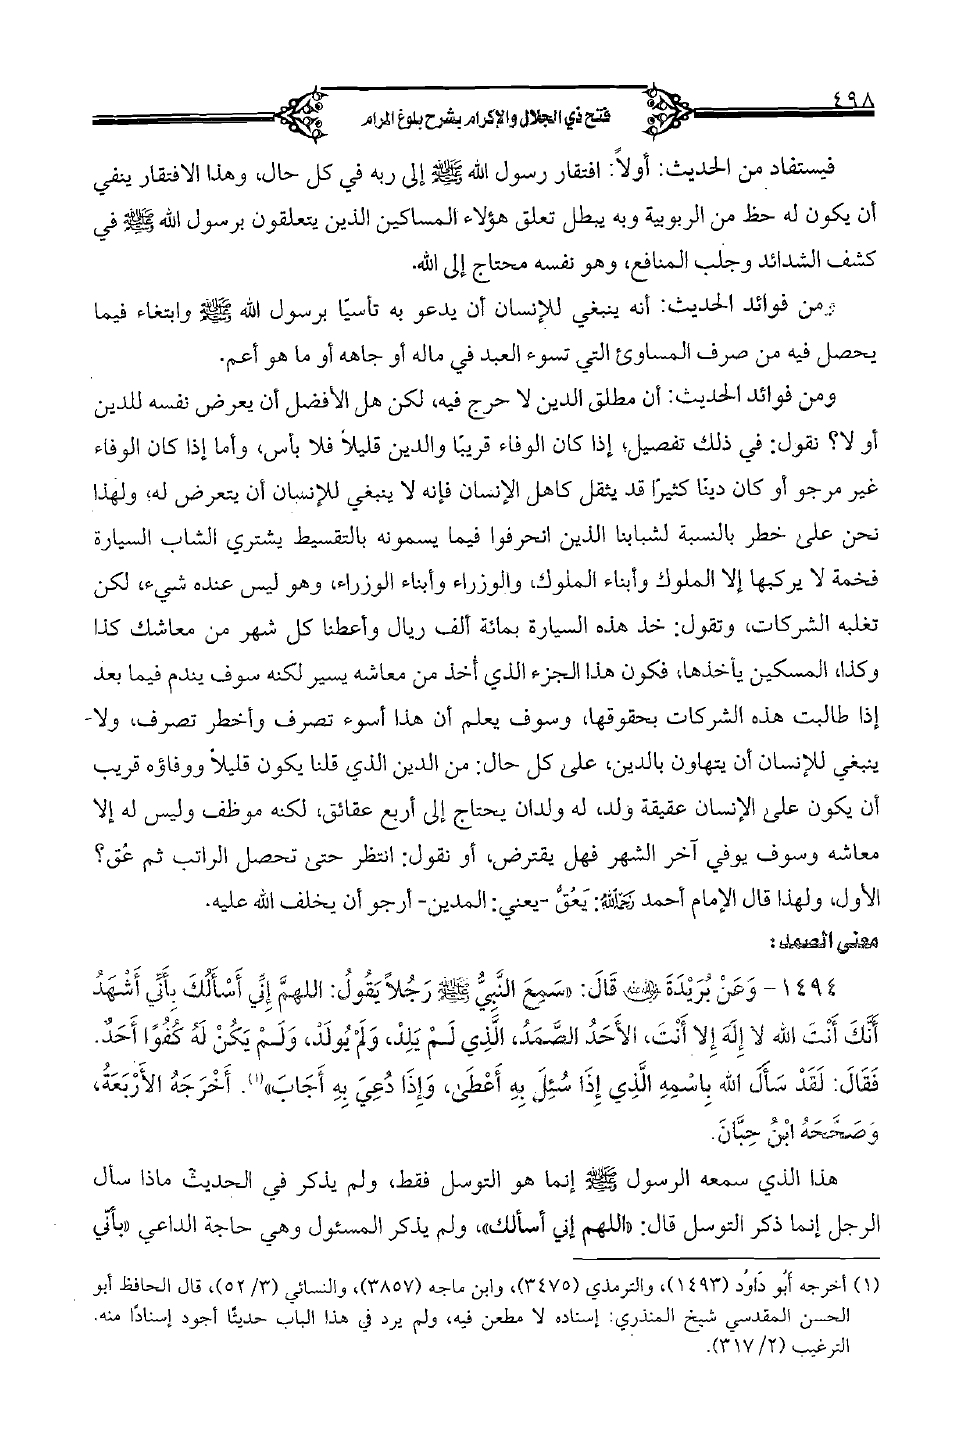 ٤٩٨
فتح ذي الجلال والإكرام بشرح بلوغ المرام
فيستفاد من الحديث: أولاً: افتقار رسول الله ﷺ إلى ربه في كل حال، وهذا الافتقار ينفي
أن يكون له حظ من الربوبية وبه يبطل تعلق هؤلاء المساكين الذين يتعلقون برسول الله ﷺ في
كشف الشدائد وجلب المنافع، وهو نفسه محتاج إلى الله.
ومن فوائد الحديث: أنه ينبغي للإنسان أن يدعو به تأسيًا برسول الله ﷺ وابتغاء فيما
يحصل فيه من صرف المساوئ التي تسوء العبد في ماله أو جاهه أو ما هو أعم.
ومن فوائد الحديث: أن مطلق الدين لا حرج فيه، لكن هل الأفضل أن يعرض نفسه للدين
أو لا؟ نقول: في ذلك تفصيل؛ إذا كان الوفاء قريبًا والدين قليلاً فلا بأس، وأما إذا كان الوفاء
غير مرجو أو كان دينًا كثيرًا قد يثقل كاهل الإنسان فإنه لا ينبغي للإنسان أن يتعرض له؛ ولهذا
نحن على خطر بالنسبة لشبابنا الذين انحرفوا فيما يسمونه بالتقسيط يشتري الشاب السيارة
فخمة لا يركبها إلا الملوك وأبناء الملوك، والوزراء وأبناء الوزراء، وهو ليس عنده شيء، لكن
تغلبه الشركات، وتقول: خذ هذه السيارة بمائة ألف ريال وأعطنا كل شهر من معاشك كذا
وكذا، المسكين يأخذها، فكون هذا الجزء الذي أخذ من معاشه يسير لكنه سوف يندم فيما بعد
إذا طالبت هذه الشركات بحقوقها، وسوف يعلم أن هذا أسوء تصرف وأخطر تصرف، ولا-
ينبغي للإنسان أن يتهاون بالدين، على كل حال: من الدين الذي قلنا يكون قليلاً ووفاؤه قريب
أن يكون على الإنسان عقيقة ولد، له ولدان يحتاج إلى أربع عقائق، لكنه موظف وليس له إلا
معاشه وسوف يوفي آخر الشهر فهل يقترض، أو نقول: انتظر حتى تحصل الراتب ثم عُق؟
الأول، ولهذا قال الإمام أحمد رَحِمَهُ اللهُ: يَعُقُّ -يعني: المدين- أرجو أن يخلف الله عليه.
معنى الصمد:
١٤٩٤- وَعَنْ بُرَيْدَةَ رضي الله عنه قَالَ: «سَمِعَ النَّبِيُّ ﷺ رَجُلاً يَقُولُ: اللهمَّ إِنِّي أَسْأَلُكَ بِأَنِّي أَشْهَدُ
أَنَّكَ أَنْتَ الله لا إِلَهَ إِلا أَنْتَ، الأَحَدُ الصَّمَدُ، الَّذِي لَمْ يَلِدْ، وَلَمْ يُولَدْ، وَلَمْ يَكُنْ لَهُ كُفُوًا أَحَدٌ.
فَقَالَ: لَقَدْ سَأَلَ الله بِاسْمِهِ الَّذِي إِذَا سُئِلَ بِهِ أَعْطَى، وَإِذَا دُعِيَ بِهِ أَجَابَ»(١). أَخْرَجَهُ الأَرْبَعَةُ،
وَصَحَّحَهُ ابْنُ حِبَّانَ.
هذا الذي سمعه الرسول ﷺ إنما هو التوسل فقط، ولم يذكر في الحديث ماذا سأل
الرجل إنما ذكر التوسل قال: «اللهم إني أسألك»، ولم يذكر المسئول وهي حاجة الداعي «بأنّي
(١) أخرجه أَبُو دَاوُد (١٤٩٣)، والترمذي (٣٤٧٥)، وابن ماجه (٣٨٥٧)، والنسائي (٣/ ٥٢)، قال الحافظ أبو
الحسن المقدسي شيخ المنذري: إسناده لا مطعن فيه، ولم يرد في هذا الباب حديثًا أجود إسنادًا منه.
الترغيب (٢/ ٣١٧).